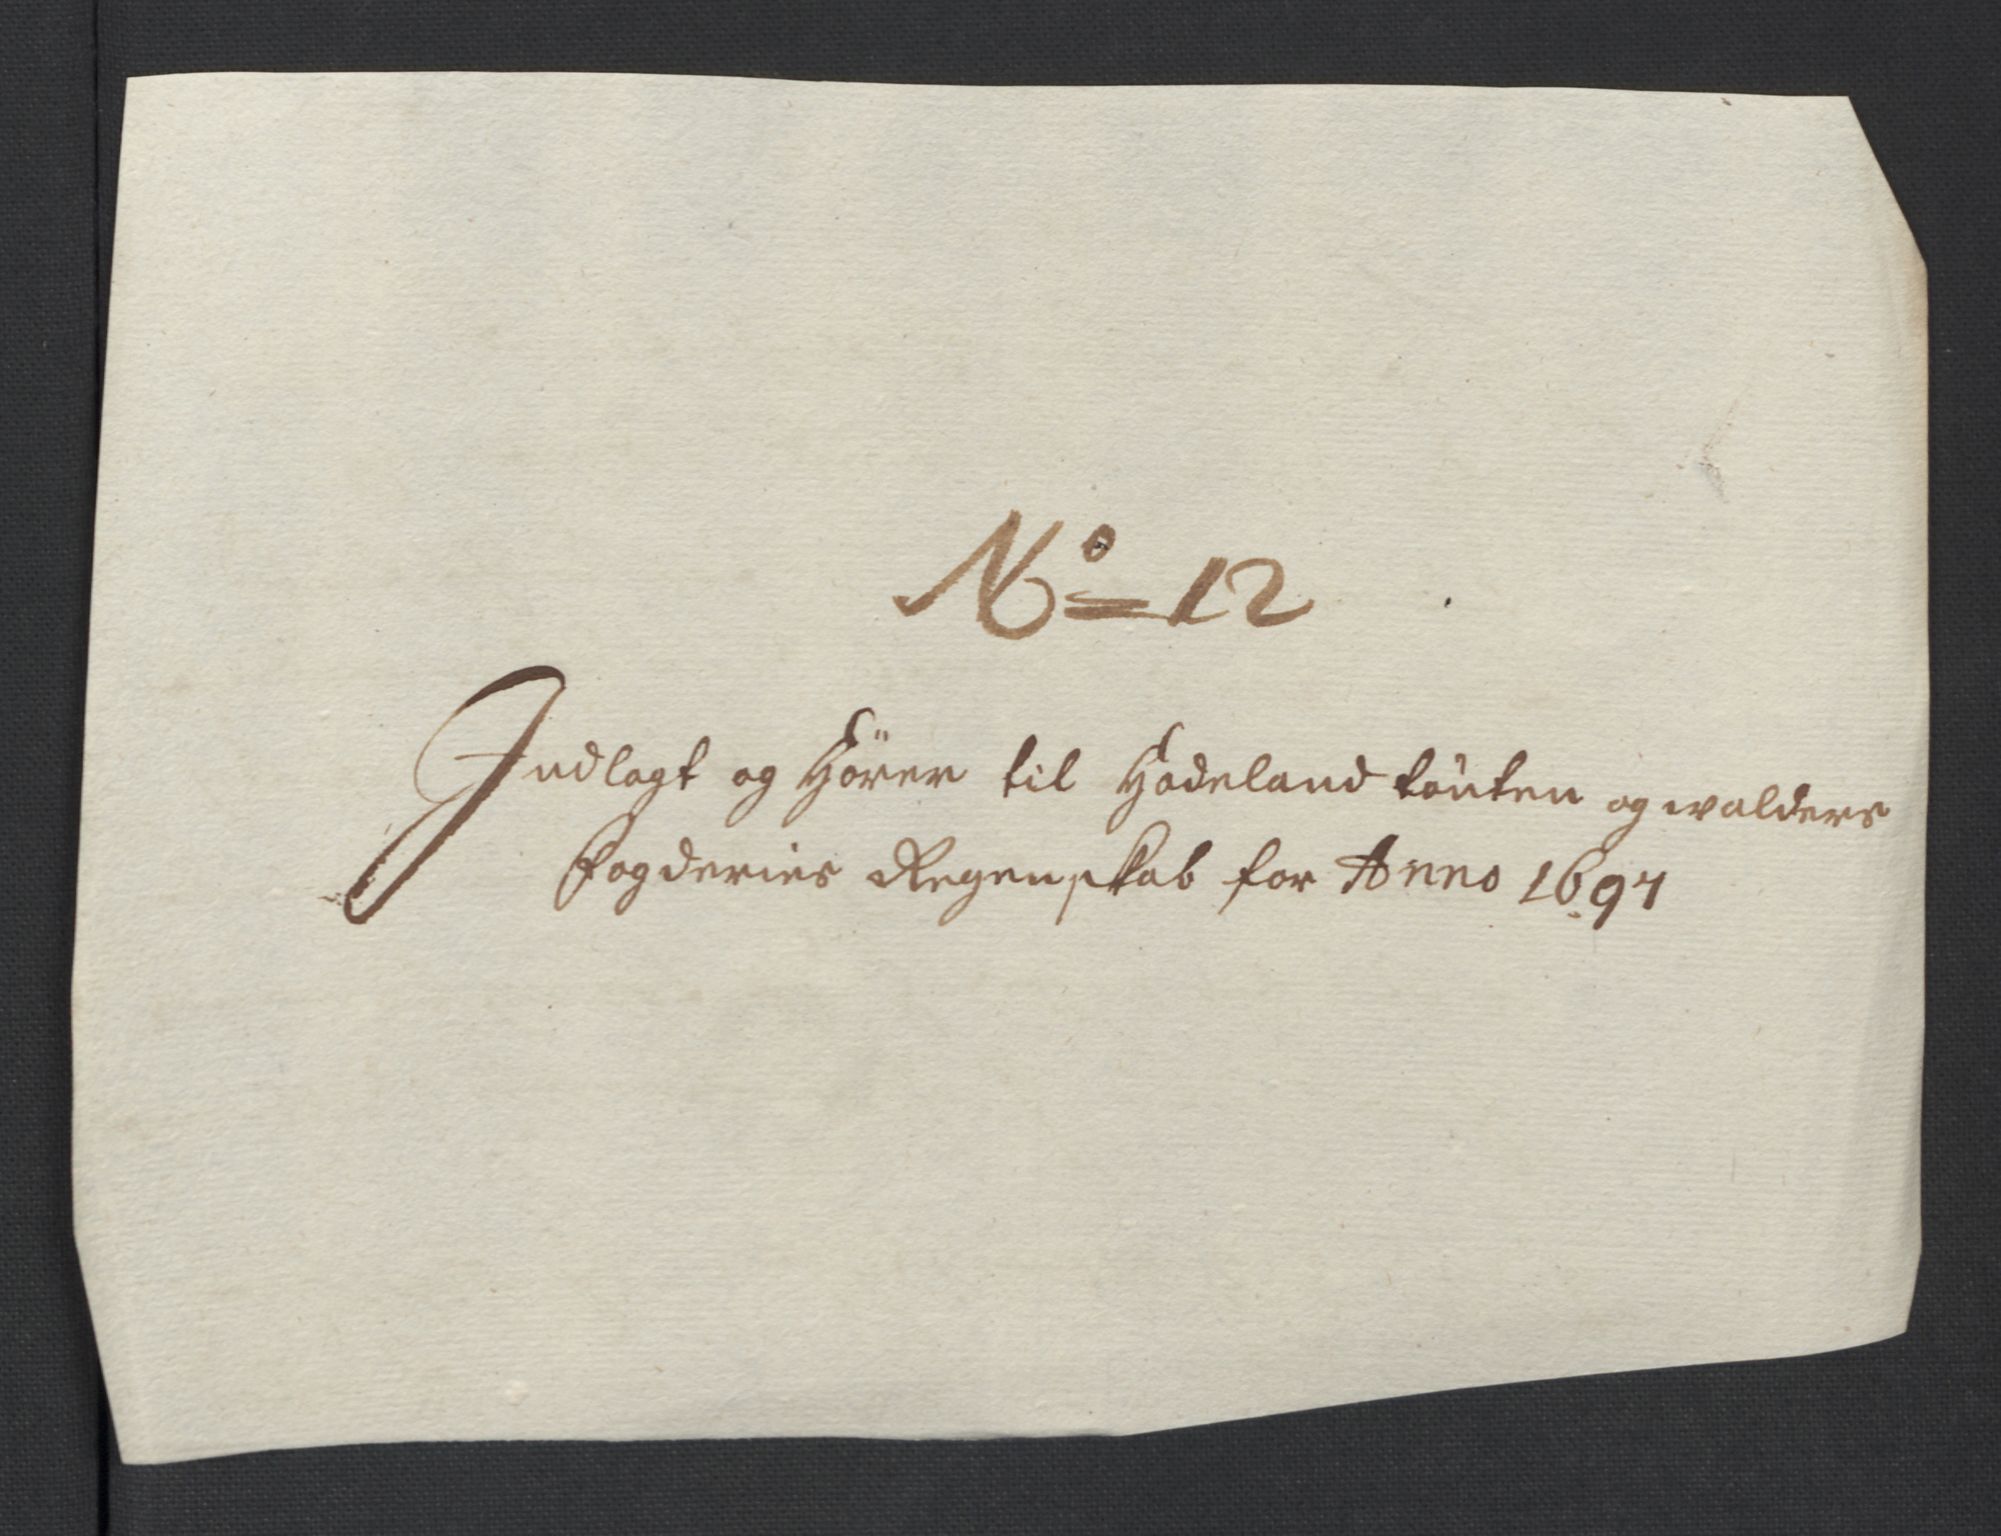 No 12
Indlagt og Hörer til Hadeland tóuten og walders
Fogderies Regenskab for Anno 1697